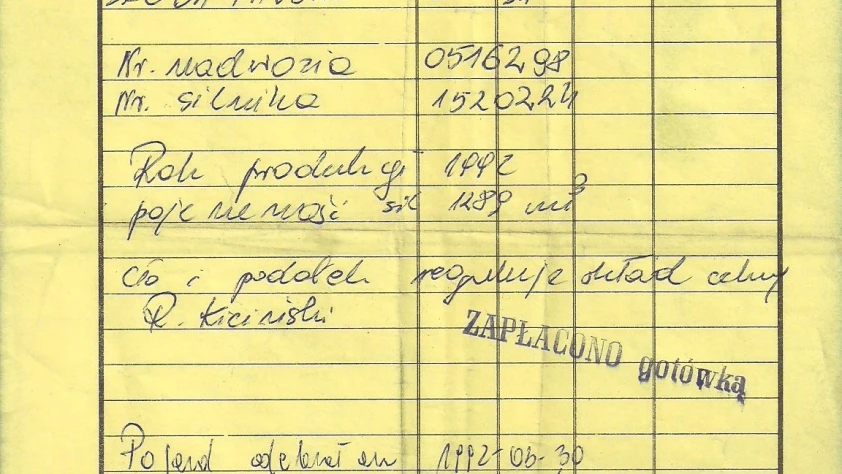 Nr. nadwozia 0516298
Nr. silnika 1520224
Rok produkcji 1992
pojemność sil 1289 cm³
Cło i podatek reguluje skład celny
R. Kiciński
ZAPŁACONO gotówką
Pojazd odebrałem 1992-06-30